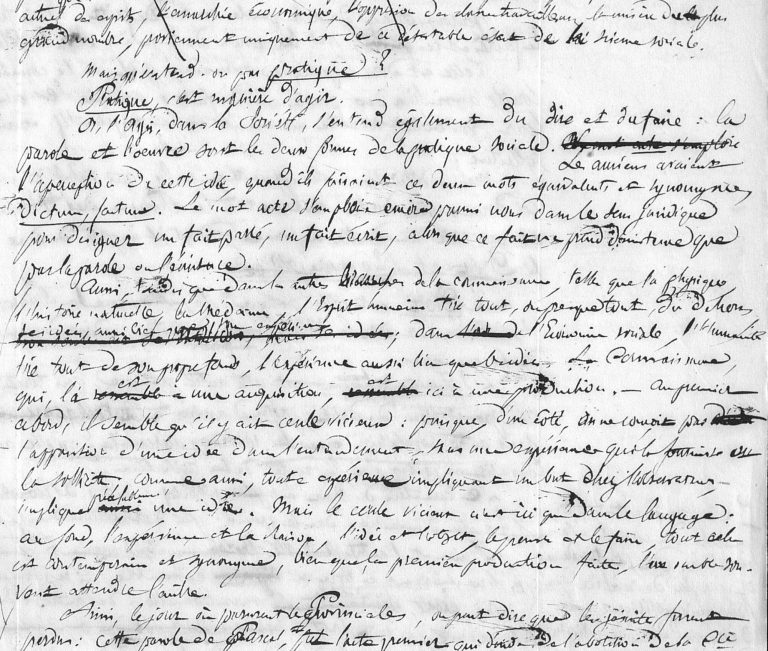 du plus
grand nombre, proviennent uniquement de ce détestable état de la Science sociale.
Mais qu'entend-on par pratique ?
Pratique, c'est manière d'agir.
Or, l'agir, dans la Société, s'entend également du dire et du faire : la
parole et l'œuvre sont les deux formes de la pratique sociale.
Les anciens avaient
l'aperception de cette idée, quand ils faisaient ces deux mots équivalents et synonymes,
Dictum, factum. Le mot acte s'emploie encore parmi nous dans le sens juridique
pour désigner un fait passé, un fait écrit, alors que ce fait ne prend d'existence que
par la parole ou l'écriture.
Aussi, tandis que dans les autres de la connaissance, telles que la physique,
l'histoire naturelle, la médecine, l'Esprit humain tire tout, ou presque tout, du dehors,
ses idées, aussi bien que ; dans de l'Economie sociale, l'humanité
tire tout de son propre fonds, l'expérience aussi bien que les idées. La Connaissance,
qui, là est une acquisition, est ici une production. — Au premier
abord, il semble qu'il y ait cercle vicieux : puisque, d'un côté, on ne conçoit pas
l'apparition d'une idée dans l'entendement, sans une expérience qui la
la sollicite, comme aussi, toute expérience impliquant un but chez l'observateur,
implique une idée. Mais le cercle vicieux n'est ici que dans le langage :
au fond, l'expérience et la raison, l'idée et l'objet, le penser et le faire, tout cela
est contemporain et synonyme, bien que la première production faite, l'une semble sou-
vent attendre l'autre.
Ainsi, le jour où parurent les Provinciales, on peut dire que les jésuites furent
perdus : cette parole de Pascal, fut l'acte premier qui de l'abolition de la Cie